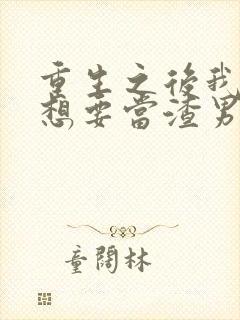 重生之後我
想要當渣男
童闊林